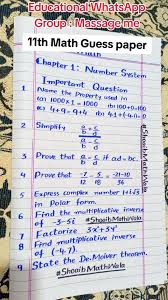 Educational WhatsApp
Group : Massage me
11th Math Guess paper
Chapter 1: Number System
Important Question
1 Name the Property used in
(a) 1000×1=1000 (b) 100+0=100
(c) 4+9=9+4
2 Simplify a/b + c/d
a/b - c/d
3 Prove that a/b = c/d if ad=bc.
4 Prove that -7/12 - 5/18 = -21-10/36
#ShoaibMathWala
5 Express complex number 1+i√3
in Polar form.
6 Find the multiplicative inverse
of -3-5i #ShoaibMathWala
7 Factorize 3x²+3y²
8 Find multiplicative inverse
of (-4,7).
9 State the De.Moiver theorem.
#ShoaibMathWala